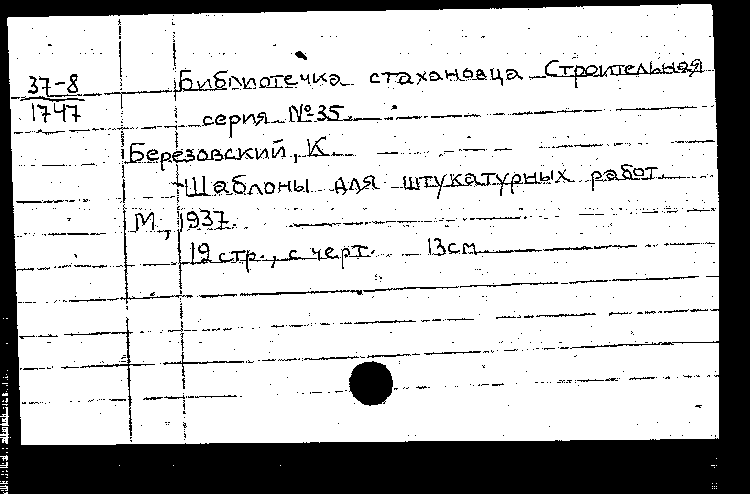 37-8
1747
Библиотечка стахановца Строительная
серия №35.
Березовский, К.
Шаблоны для штукатурных работ.
М., 1937.
19 стр., с черт. 13см